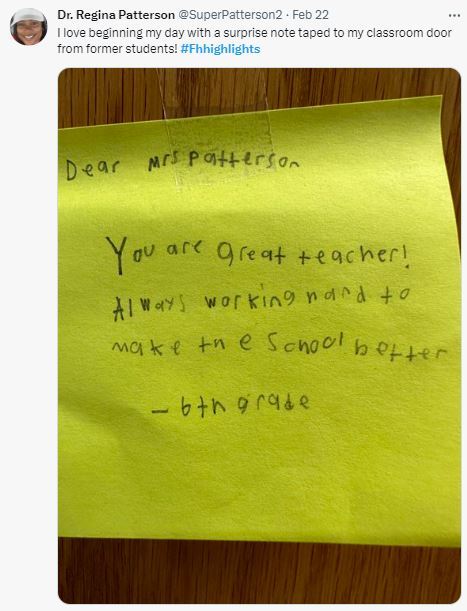 Dr. Regina Patterson @SuperPatterson2 · Feb 22
I love beginning my day with a surprise note taped to my classroom door
from former students! #Fhhighlights
Dear Mrs Patterson
You are great teacher!
Always working hard to
make the school better
- 6th grade